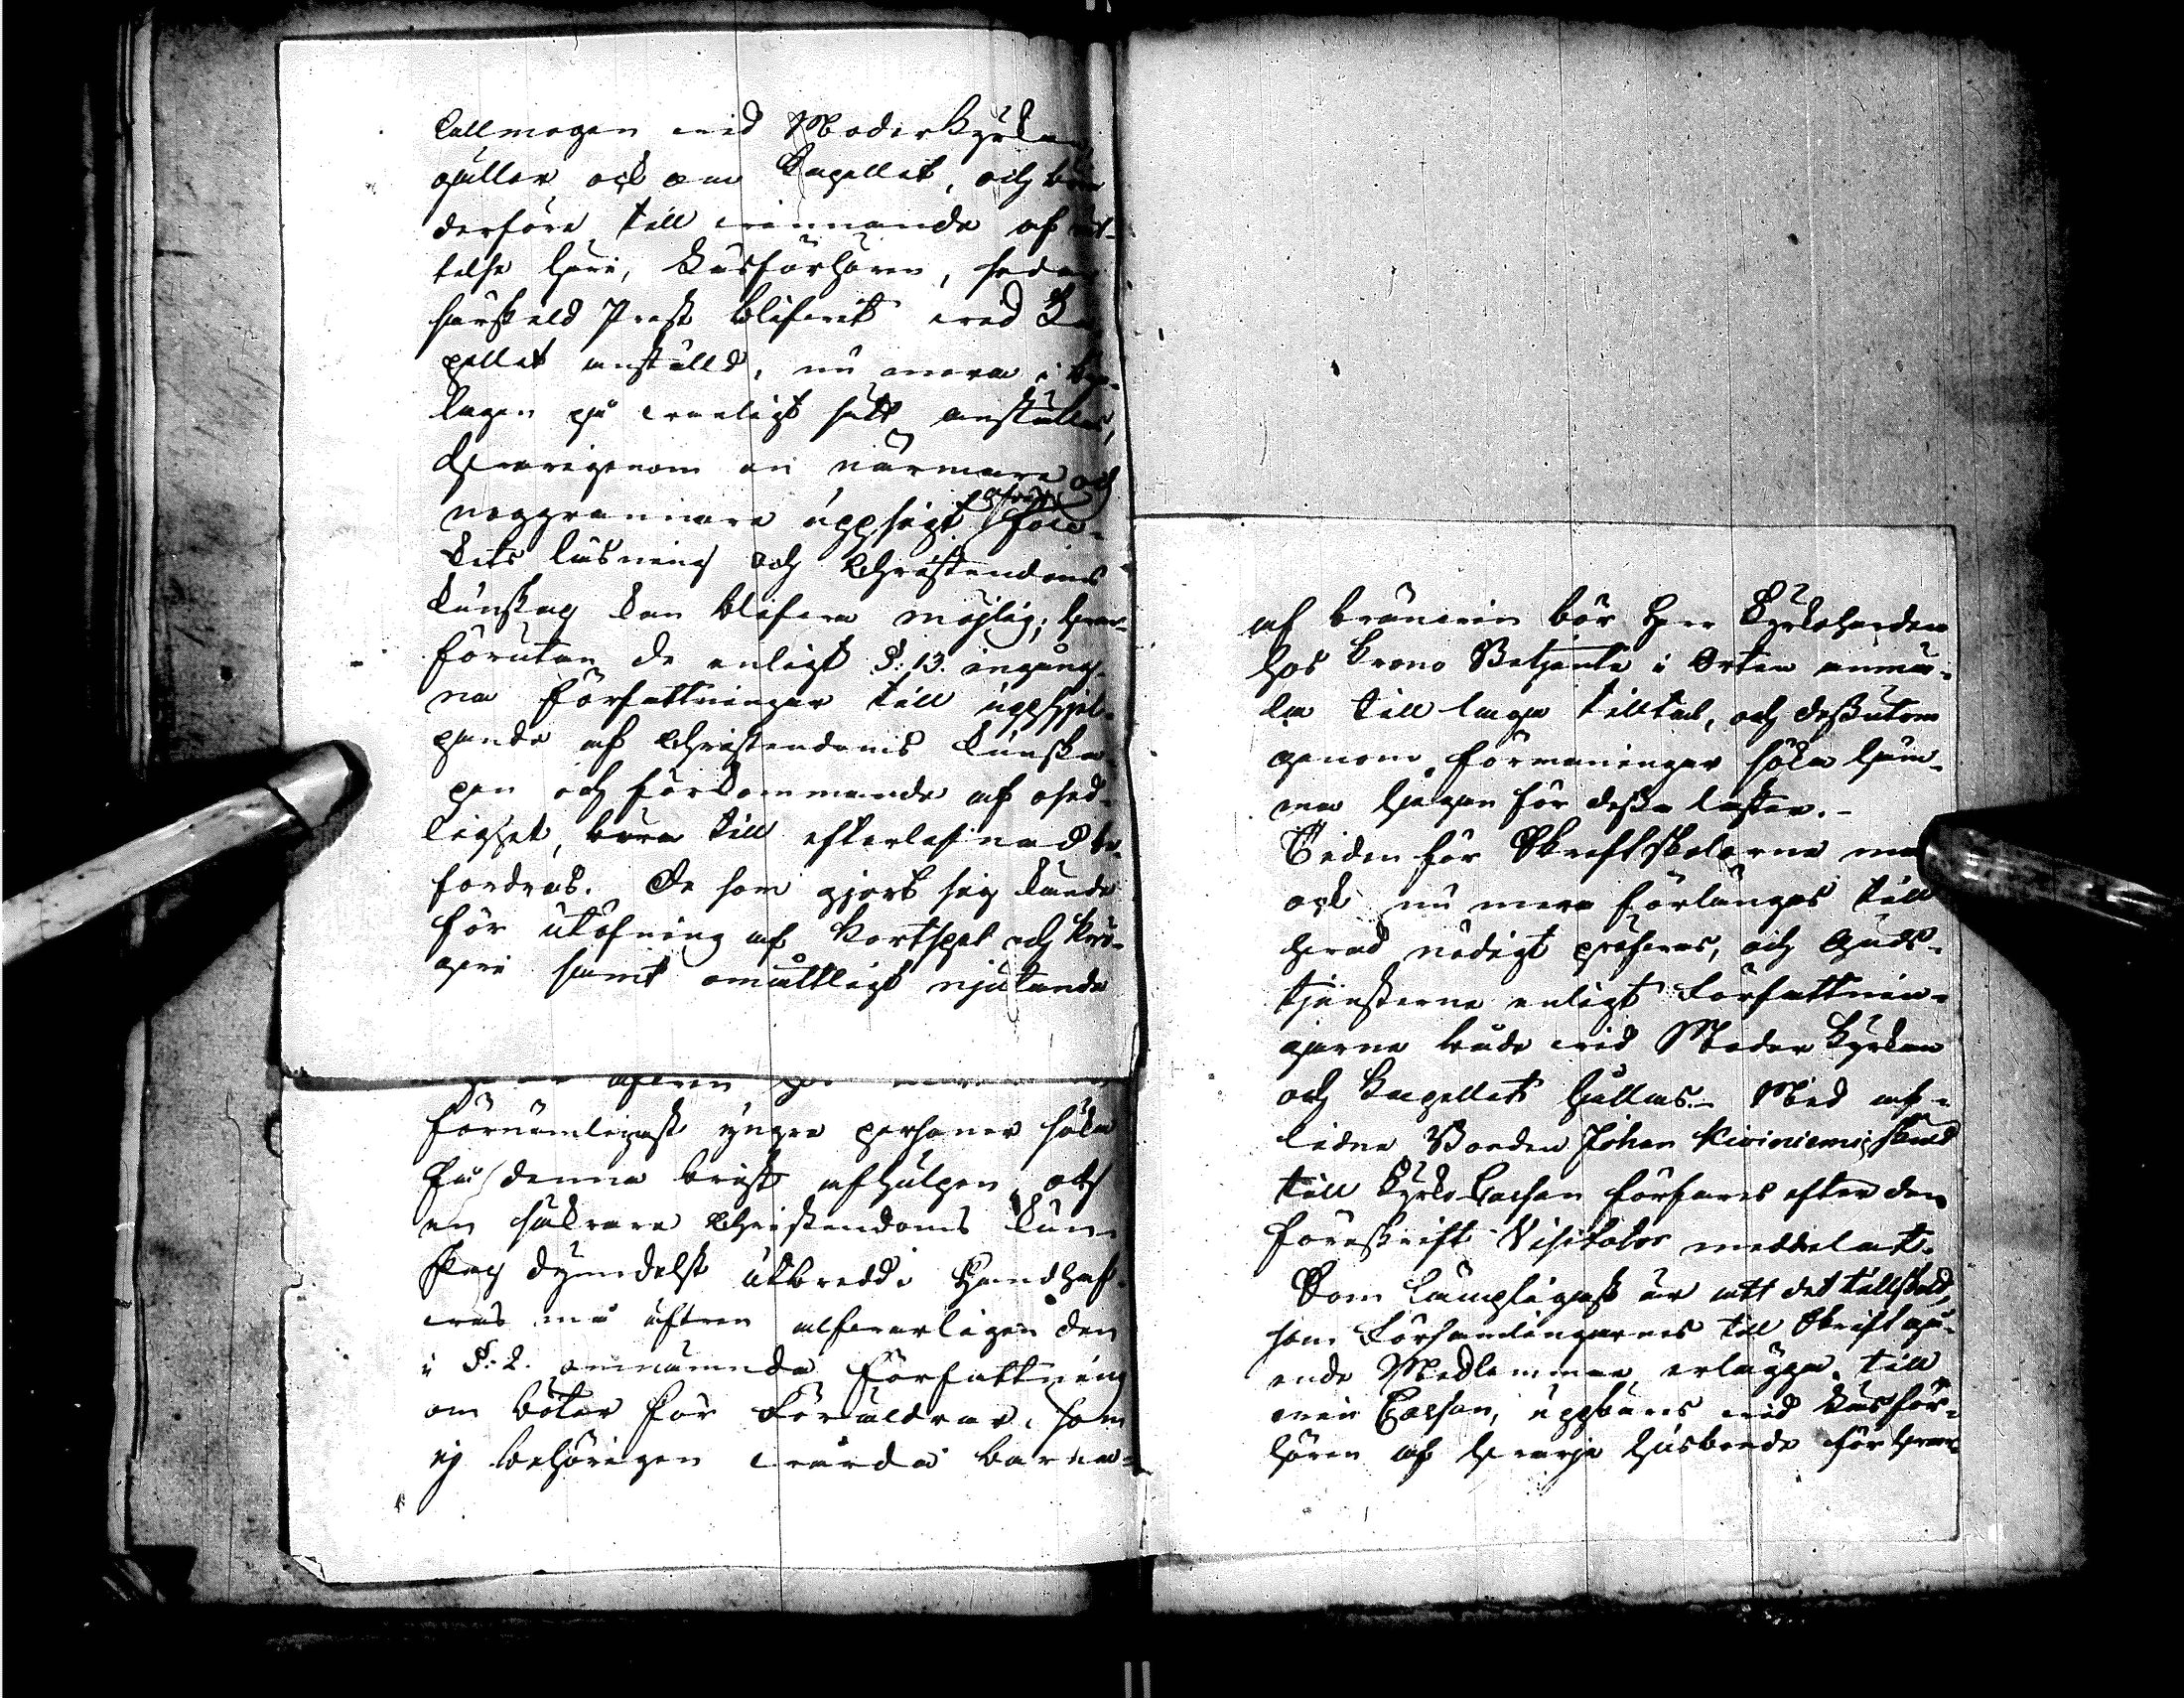 allmogen vid Moderkyrkan
gäller ock om Kapellet, och böra
derföre till vinnande af rät-
telse häri, Läsförhören, sedan
särskild Prest blifvit vid Ka-
pellet anställd, nu mera i by-
lagen på vanligt sätt anställas,
hvarigenom en närmare och
noggrannare uppsigt öfver Fol-
kets läsning och Christendoms
kunskap kan blifva möjlig; hvar-
förutan de enligt §. 13. ingång-
na författningar till upphjel-
pande af Christendoms kunska-
pen och förekommande af osed-
lighet, böra till efterlefnad be-
fordras. De som gjort sig kända
för utöfning af Kortspel och krö-
geri samt omåttligt njutande
förnämligast yngre personer söka
få denna brist afhulpen och
en säkrare Christendoms kun-
skap dymedelst utbredd. Handhaf-
vas må äfven alfvarligen den
i §. 2. omnämnda författning
om böter för Föräldrar, som
ej behörigen vårda barna-
af bränvin bör Herr Kyrkoherden
hos Krono Betjente i Orten anmä-
la till laga tilltal, och dessutom
genom förmaningar söka häm-
ma hogen för dessa laster.-
Tiden för Skriftskolorne må
ock nu mera förlängas till
hvad nödigt pröfvas, och Guds-
tjensterne enligt Författnin-
garne både vid Moder Kyrkan
och Kapellet hållas.- Med af-
lidne Bonden Johan Kiviniemis skuld
till Kyrko Cassan förfares efter den
föreskrift Visitator meddelat.
Som lämpligast är att det tillskott,
som Församlingarnes till Skrift gå-
ende Medlemmar erlägga till
vin Cassan, uppbäres vid Läsför-
hören af hvarje husbonde för hvar